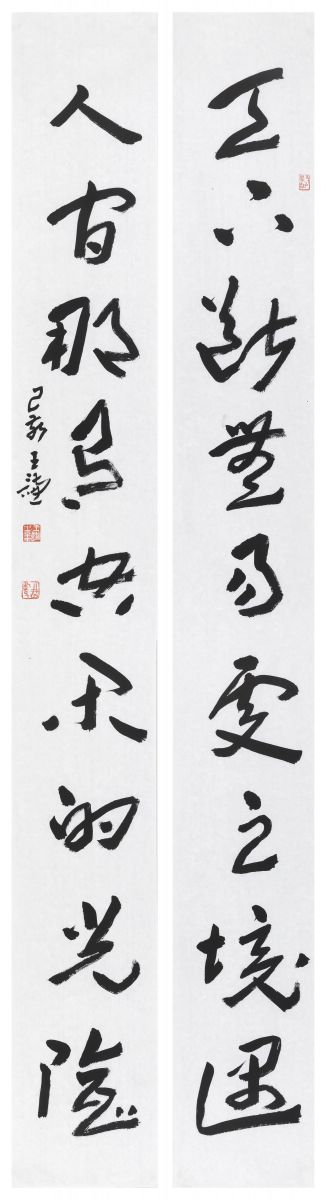 天下断无易处之境遇
人间那有空闲的光阴
己亥 王